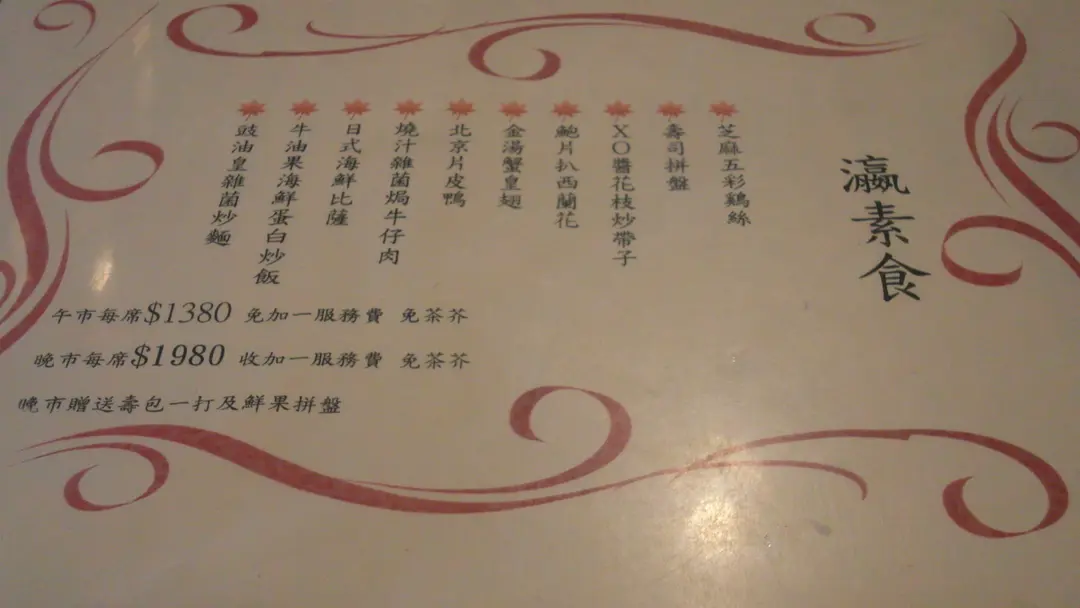 瀛素食
芝麻五彩鷄絲
壽司拼盤
XO醬花枝炒帶子
鮑片扒西蘭花
金湯蟹皇翅
北京片皮鴨
燒汁雜菌焗牛仔肉
日式海鮮比薩
牛油果海鮮蛋白炒飯
豉油皇雜菌炒麵
午市每席$1380 免加一服務費 免茶芥
晚市每席$1980 收加一服務費 免茶芥
晚市贈送壽包一打及鮮果拼盤